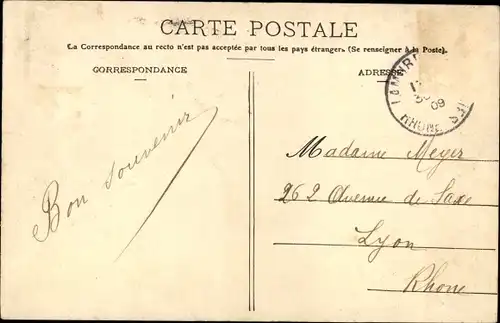 CARTE POSTALE
La Correspondance au recto n'est pas acceptée par tous les pays étrangers. (Se renseigner à la Poste).
CORRESPONDANCE
ADRESSE
09
RHONE
Bon souvenir
Madame Meyer
262 Avenue de Saxe
Lyon
Rhone